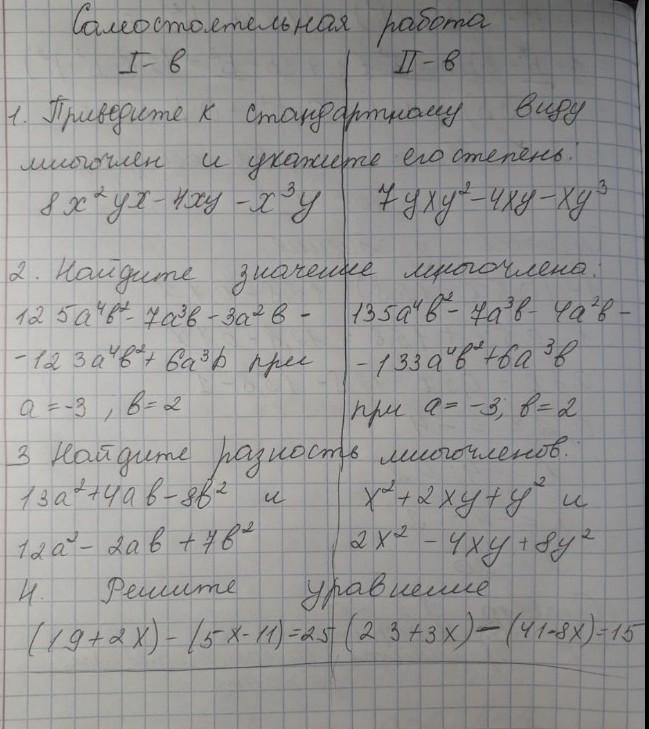 Самостоятельная работа
I-в II-в
1. Приведите к стандартному виду
многочлен и укажите его степень:
8x²yx-4xy-x³y 7yxy²-4xy-xy³
2. Найдите значение многочлена:
125a⁴b²-7a³b-3a²b- 135a⁴b²-7a³b-4a²b-
-123a⁴b²+6a³b при -133a⁴b²+6a³b
a=-3, b=2 при a=-3; b=2
3 Найдите разность многочленов:
13a²+4ab-8b² и x²+2xy+y² и
12a²-2ab+7b² 2x²-4xy+8y²
4. Решите уравнение
(19+2x)-(5x-11)=25 (23+3x)-(41-8x)=15